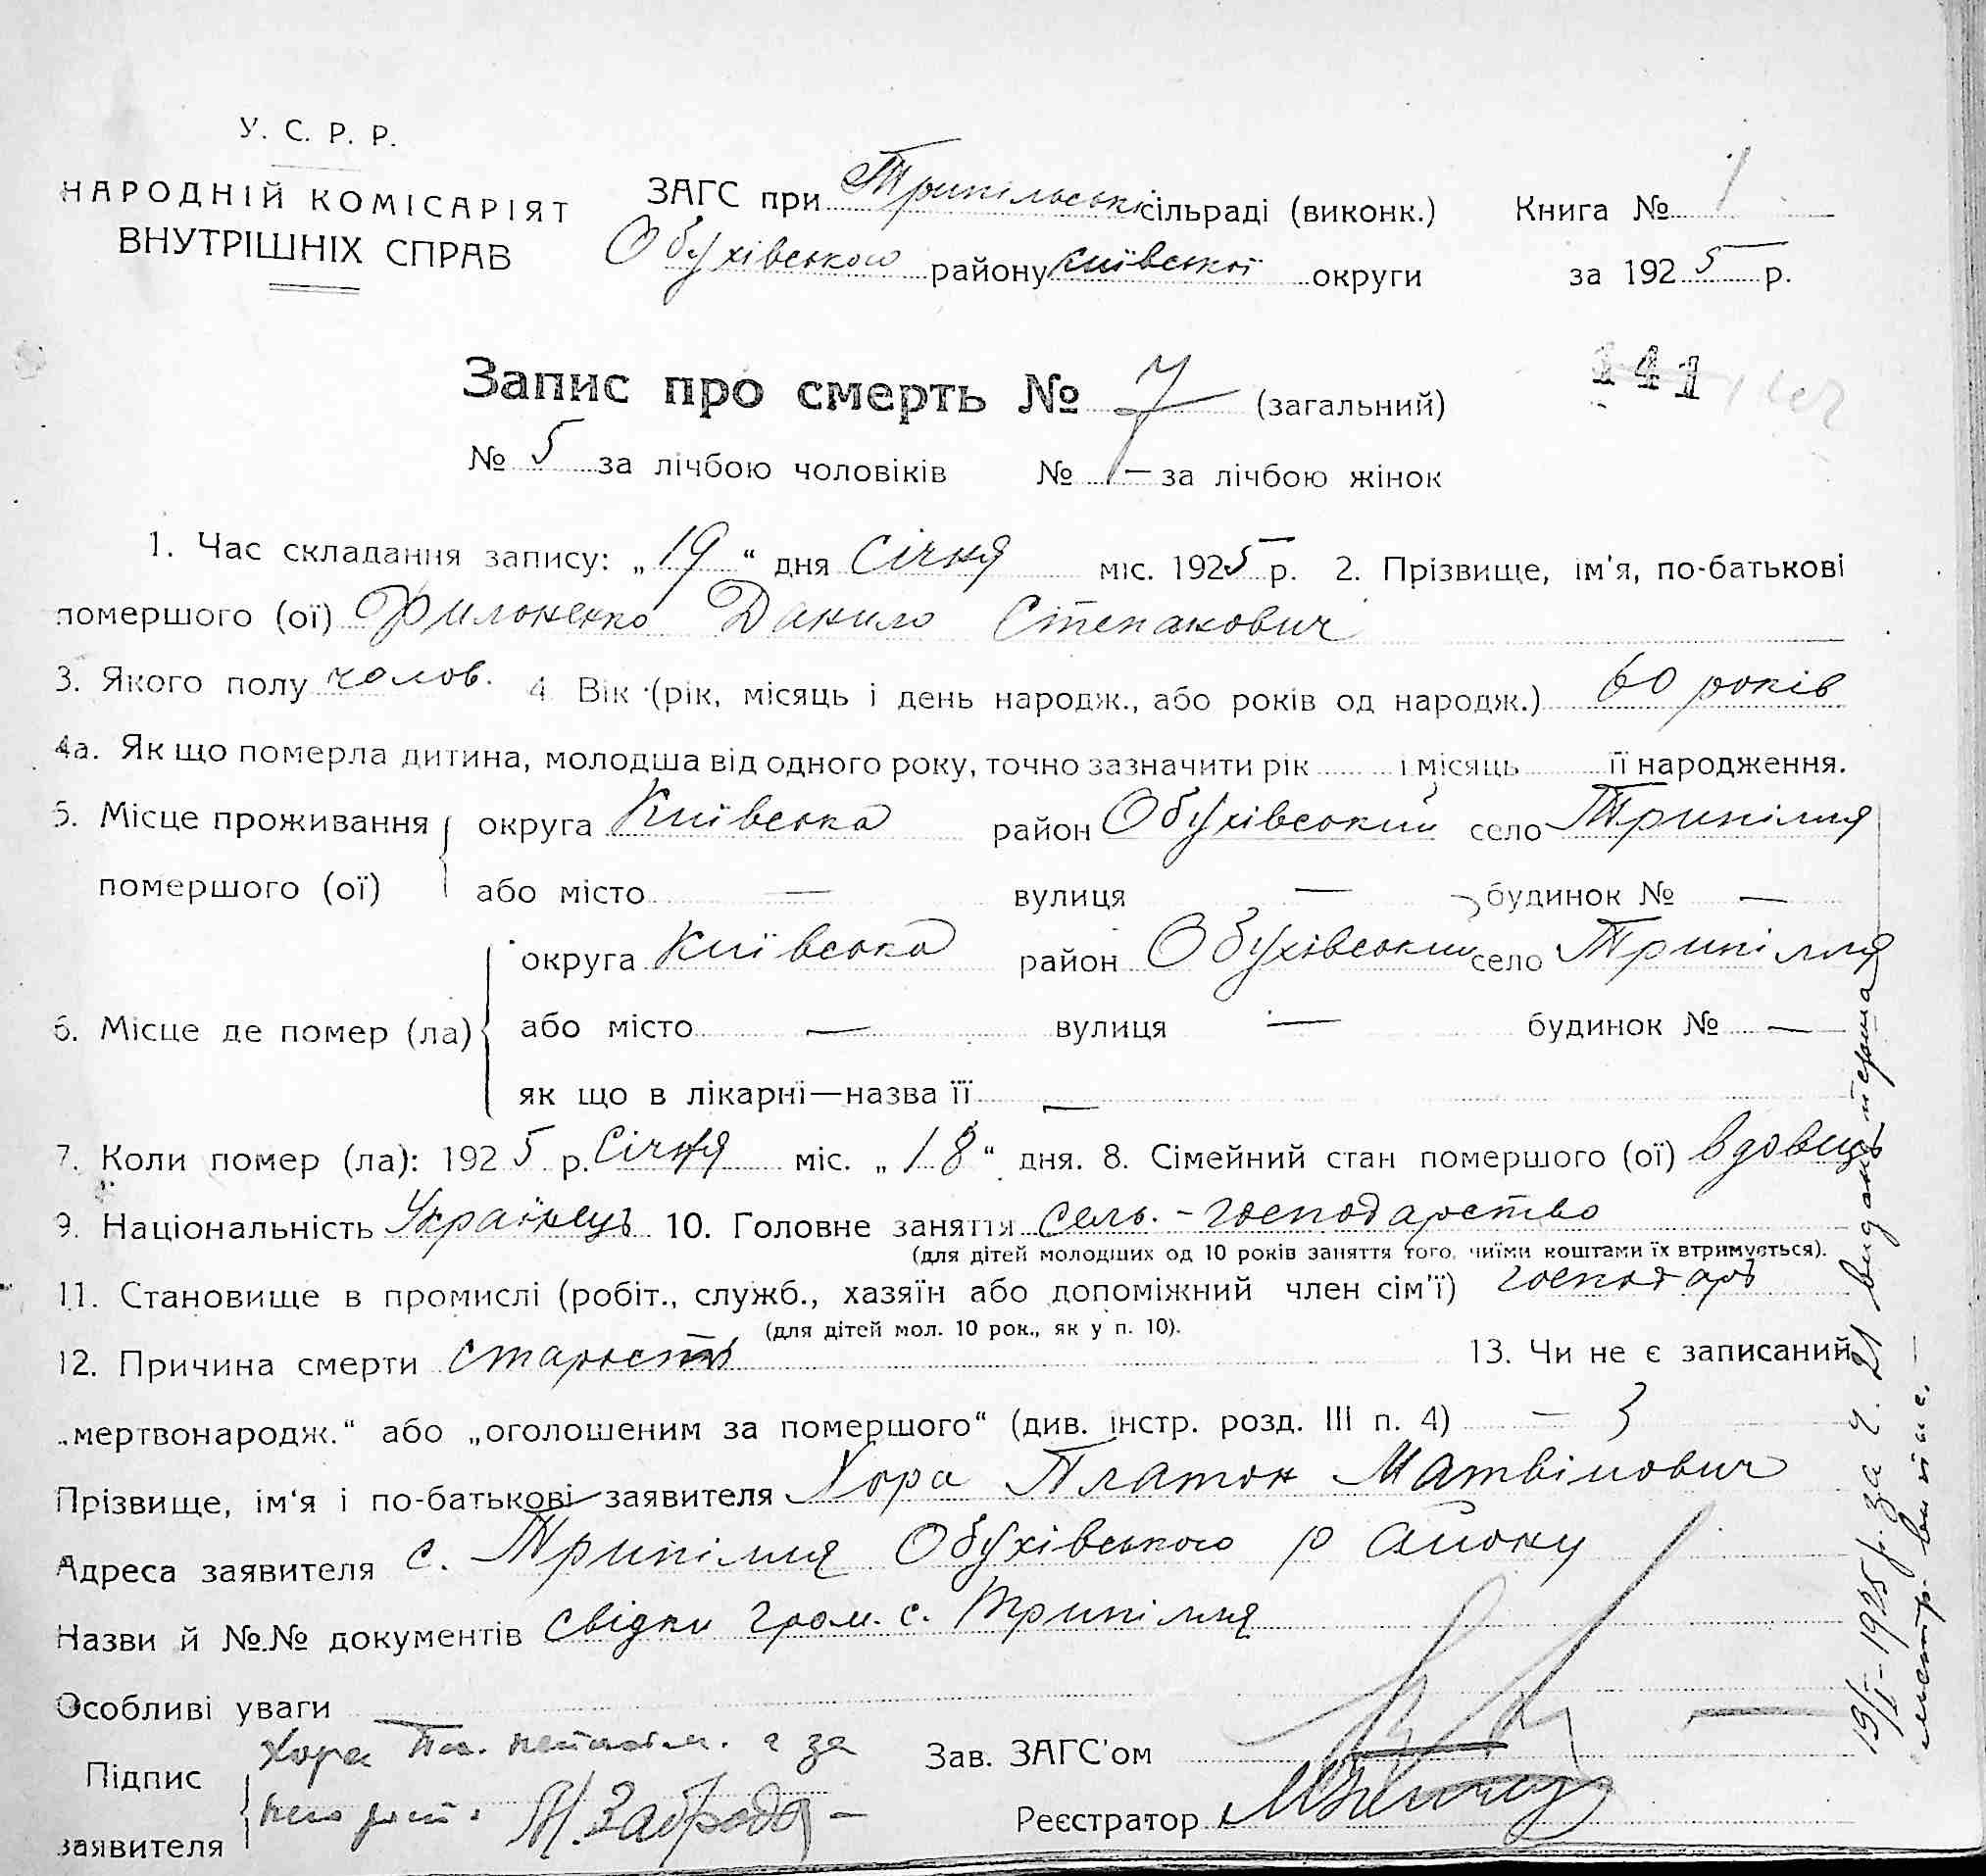 У. С. Р. Р.
НАРОДНІЙ КОМІСАРІЯТ
ВНУТРІШНІХ СПРАВ
ЗАГС при Трипільські сільраді (виконк.)
Обухівського району Київської округи
Книга № 1
за 1925 р.
141
Запис про смерть № 7 (загальний)
№ 5 за лічбою чоловіків № — за лічбою жінок
1. Час складання запису: „19“ дня Січня міс. 1925 р. 2. Прізвище, ім'я, по-батькові
помершого (ої) Филоненко Данило Степанович
3. Якого полу чолов. 4 Вік (рік, місяць і день народж., або років од народж.) 60 років
4а. Як що померла дитина, молодша від одного року, точно зазначити рік і місяць її народження.
5. Місце проживання округа Київська район Обухівський село Трипілля
помершого (ої) або місто — вулиця — будинок № —
округа Київська район Обухівський село Трипілля
6. Місце де помер (ла) або місто — вулиця — будинок № —
як що в лікарні—назва її —
7. Коли помер (ла): 1925 р. Січня міс. „18“ дня. 8. Сімейний стан помершого (ої) вдовець
9. Національність Українець 10. Головне заняття сель.-господарство
(для дітей молодших од 10 років заняття того, чиїми коштами їх втримується).
11. Становище в промислі (робіт., служб., хазяїн або допоміжний член сім'ї) господарь
(для дітей мол. 10 рок., як у п. 10).
12. Причина смерти старость 13. Чи не є записаний
„мертвонародж.“ або „оголошеним за помершого“ (див. інстр. розд. III п. 4) —
Прізвище, ім'я і по-батькові заявителя Хора Платон Матвійович
Адреса заявителя с. Трипілля Обухівського району
Назви й №№ документів свідки гром. с. Трипілля
Особливі уваги —
Підпис заявителя Хора Пл. а за
него М. Заброда —
Зав. ЗАГС'ом
Реєстратор
19/I-1925 р. за ч. 21 видано